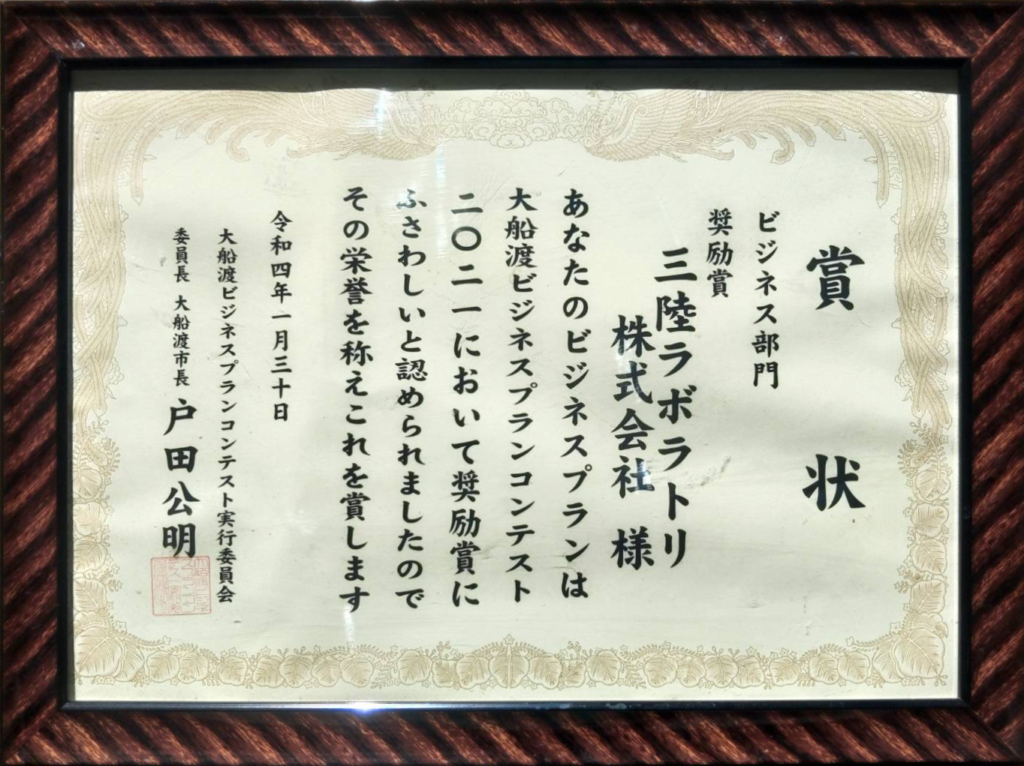 賞状
ビジネス部門
奨励賞
三陸ラボラトリ
株式会社 様
あなたのビジネスプランは
大船渡ビジネスプランコンテスト
二〇二一において奨励賞に
ふさわしいと認められましたので
その栄誉を称えこれを賞します
令和四年一月三十日
大船渡ビジネスプランコンテスト実行委員会
委員長 大船渡市長 戸田公明